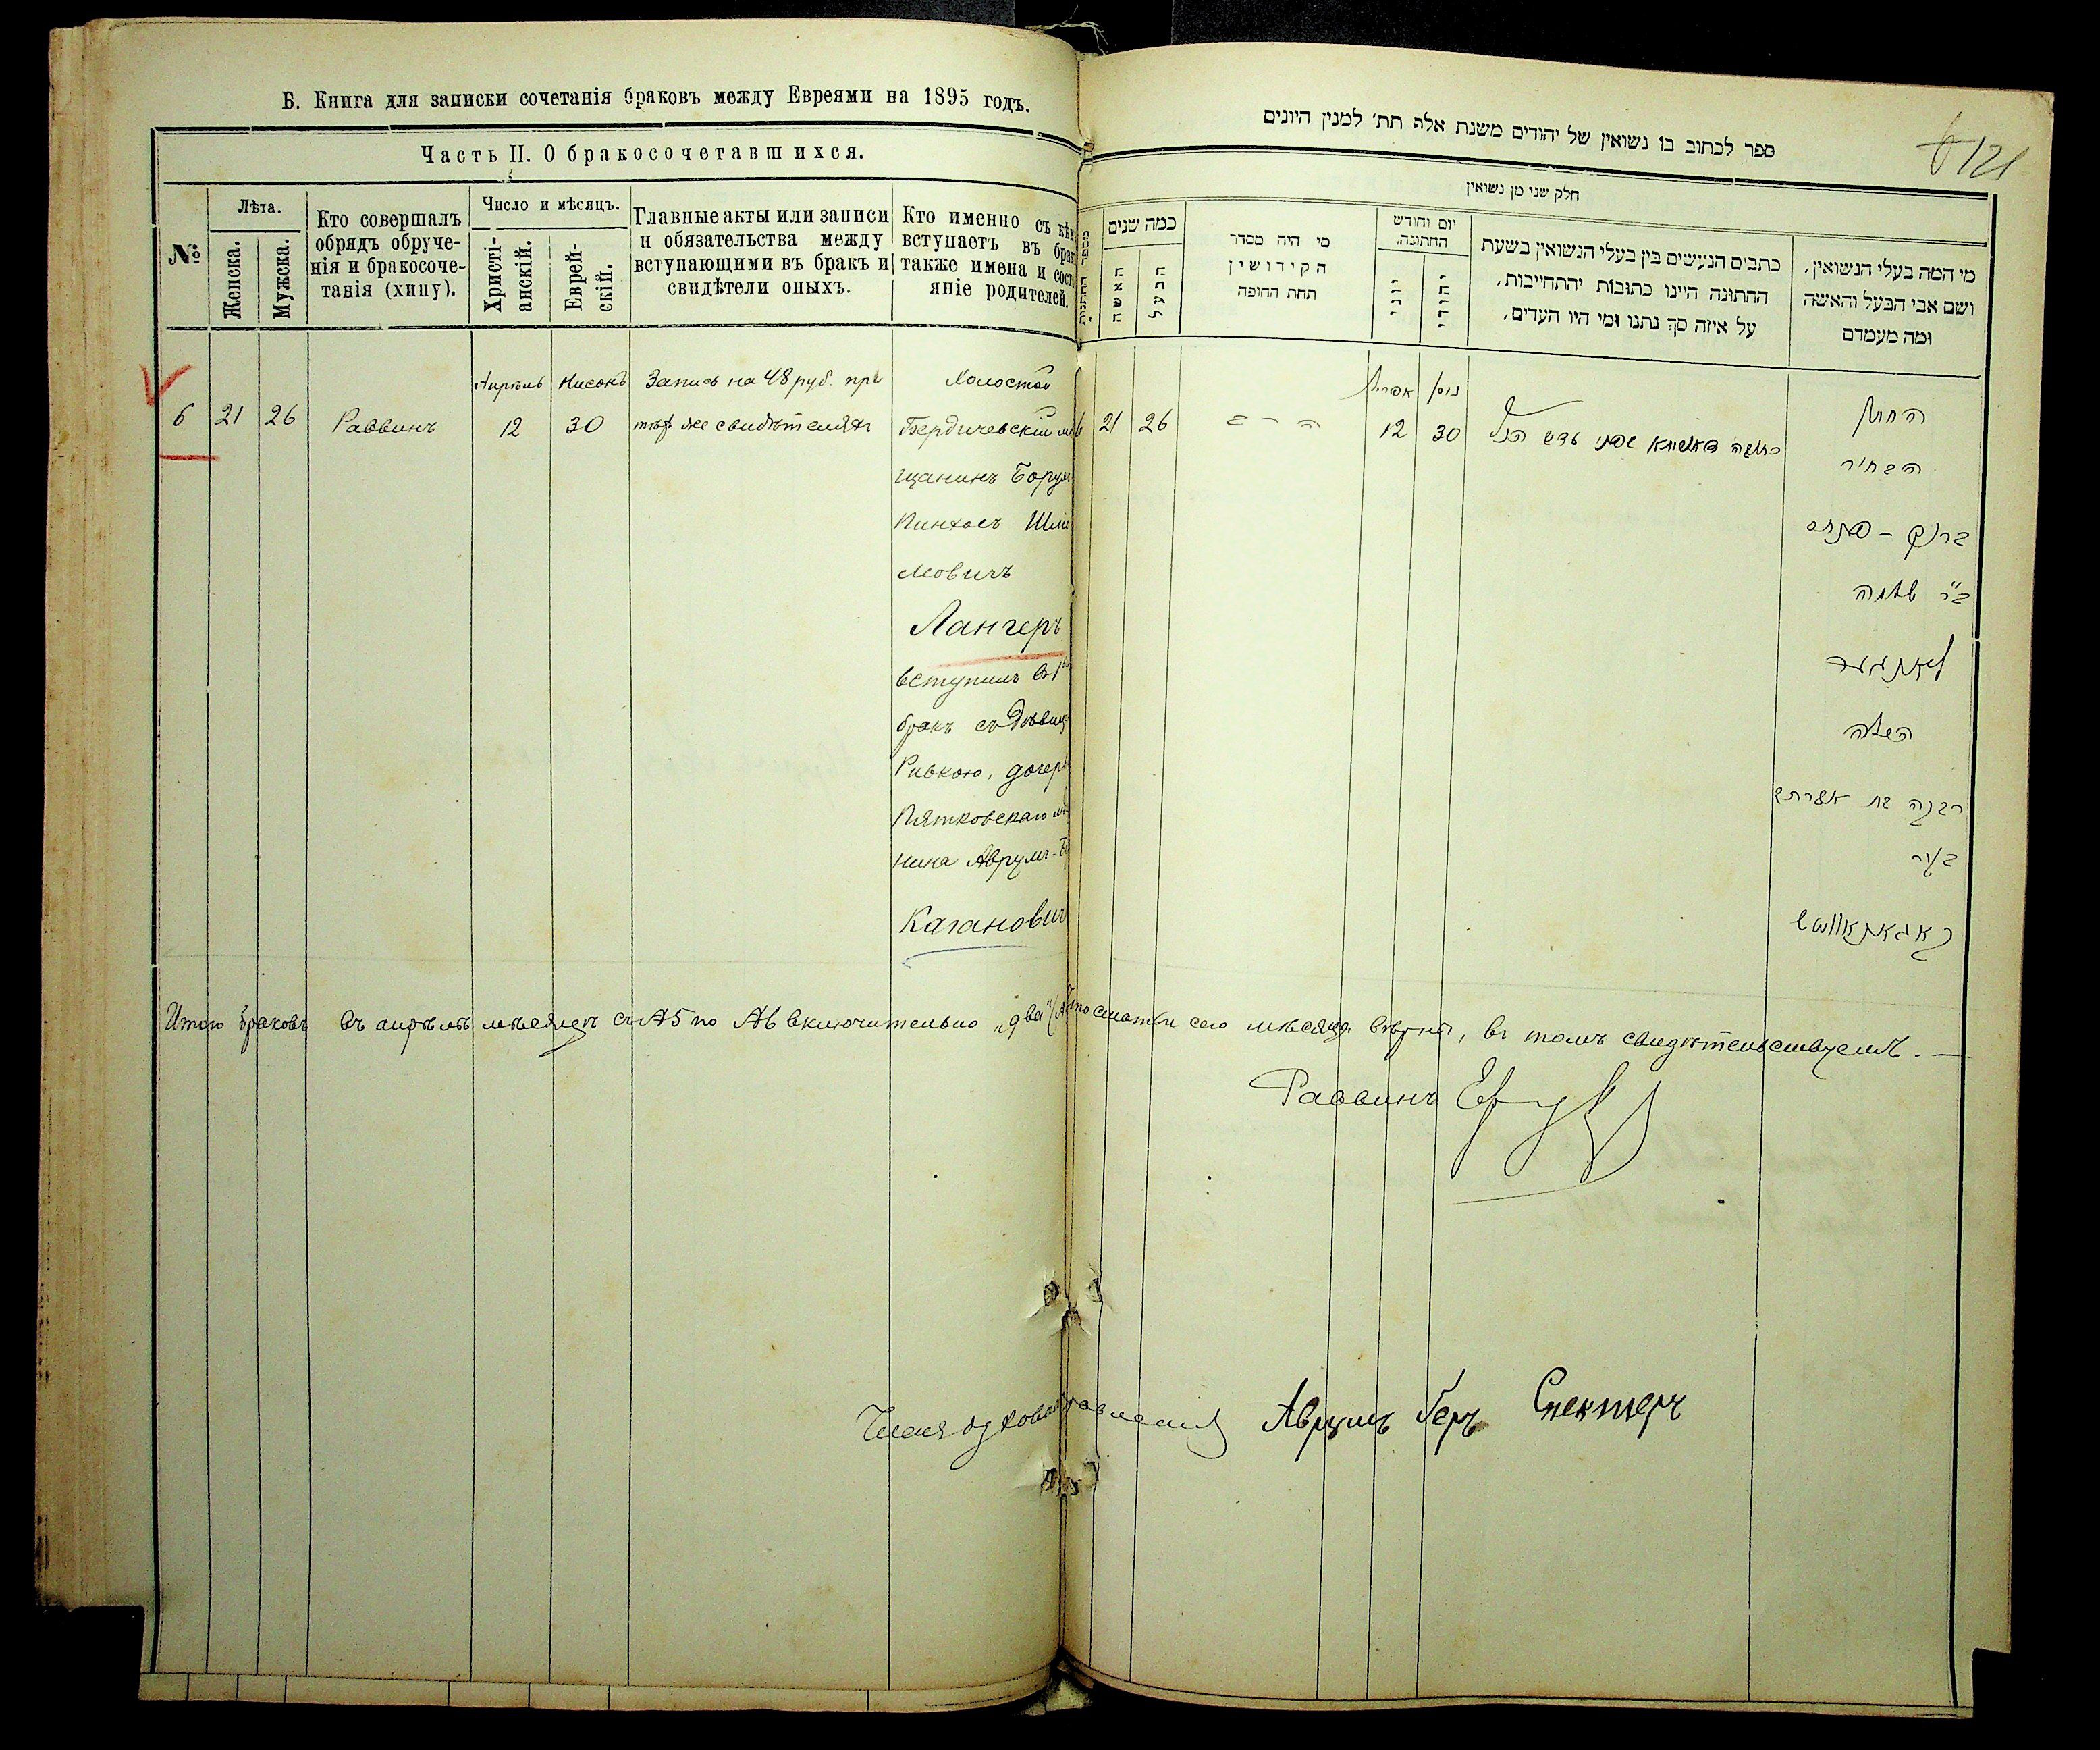 Б. Книга для записки сочетанія браковъ между Евреями на 1895 годъ.
Часть II. О бракосочетавшихся.
№
Лѣта.
Женска.
Мужска.
Кто совершалъ
обрядъ обруче-
нія и бракосоче-
танія (хипу).
Число и мѣсяцъ.
Христі-
анскій.
Еврей-
скій.
Главные акты или записи
и обязательства между
вступающими въ бракъ и
свидѣтели оныхъ.
Кто именно съ кѣм
вступаетъ въ брак
также имена и сост
яніе родителей.
Апрѣль Нисонъ Запись на 48 руб. при Холостой
6 21 26 Раввинъ 12 30 тѣхъ же свидѣтеляхъ Бердичевскій мѣ
щанинъ Борухъ
Пинхосъ Шлі
мовичъ
Лангеръ
вступилъ въ 1й
бракъ съ Дѣвиц
Ривкою, дочерь
Пятковскаго мѣ
нина Аврумъ-Бе
Каганович
ספר לכתוב בו נשואין של יהודים משנת אלף תת׳ למנין היונים
121
חלק שני מן נשואין
מספר החתונות
כמה שנים
האשה
הבעל
מי היה מסדר
הקידושין
תחת החופה
יום וחודש
החתונה.
יוני
יהודי
כתבים הנעשים בין בעלי הנשואין בשעת
החתונה היינו כתובות והתחייבות,
על איזה סך נתנו ומי היו העדים,
מי המה בעלי הנשואין,
ושם אבי הבעל והאשה
ומה מעמדם
אפריל ניסן החתן
6 21 26 הרב 12 30 הנ״ל
הבחור
ברוך – פנחס
ב״ר שלמה
לאנגער
הכלה
רבקה בת אברהם
בער
קאגאנאוויטש
Итого браковъ въ апрѣлѣ мѣсяцѣ съ №5 по №6 включительно „два“ что статьи сего мѣсяца вѣрны, въ томъ свидѣтельствуемъ. —
Раввинъ
Членъ духовн правленія Аврумъ Беръ Спекторъ